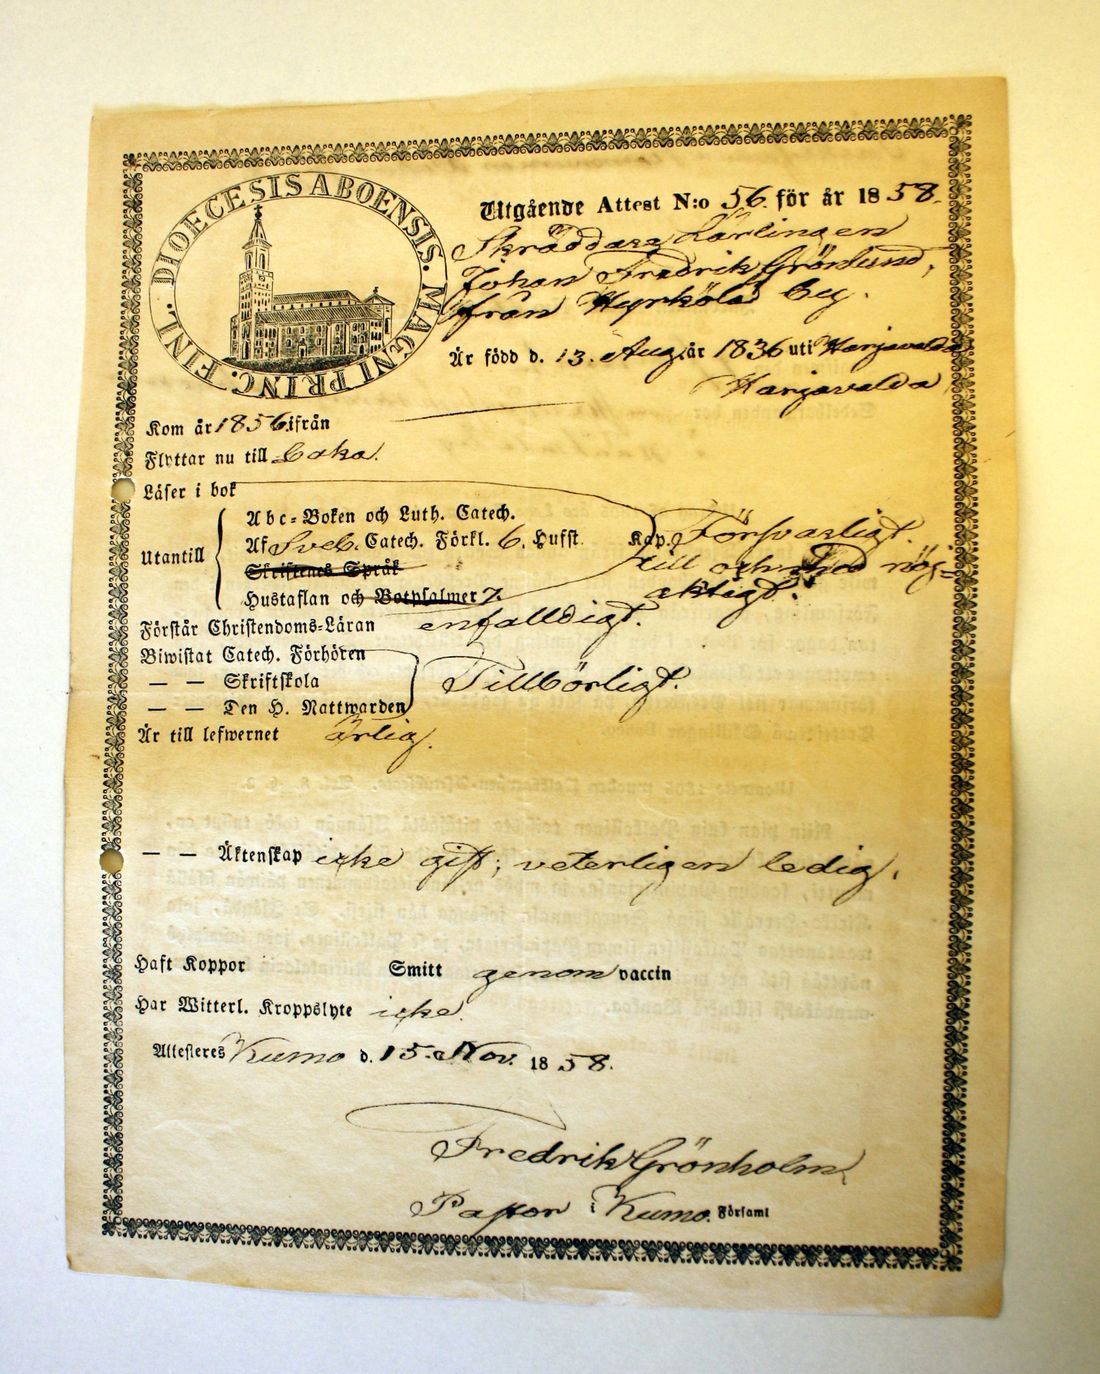 DIOECESIS ABOENSIS. MAGNI PRINC. FINL.
Utgående Attest N:o 56. för år 1858.
Skräddare Lärlingen
Johan Fredrik Grönlund,
från Hyrkölä by.
Är född d. 13. Aug. år 1836 uti Harjavalda
Kom år 1856 ifrån Harjavalda
Flyttar nu till
Läser i bok
Abc-Boken och Luth. Catech.
Utantill Af Sveb. Catech. Förkl. 6. Hufst. Kap. Försvarligt.
Skriftenes Språk till och med nöj-
Hustaflan och Botpsalmer 7. aktigt.
Förstår Christendoms-Läran enfalldigt.
Biwistat Catech. Förhören
— — Skriftskola Tillbörligt.
— — Den H. Nattwarden
Är till lefwernet ärlig.
— — Äktenskap icke gift; veterligen ledig.
Haft Koppor Smitt genom vaccin
Har Witterl. Kroppslyte icke.
Attesteres Kumo d. 15. Nov. 1858.
Fredrik Grönholm,
Pastor i Kumo. Församl